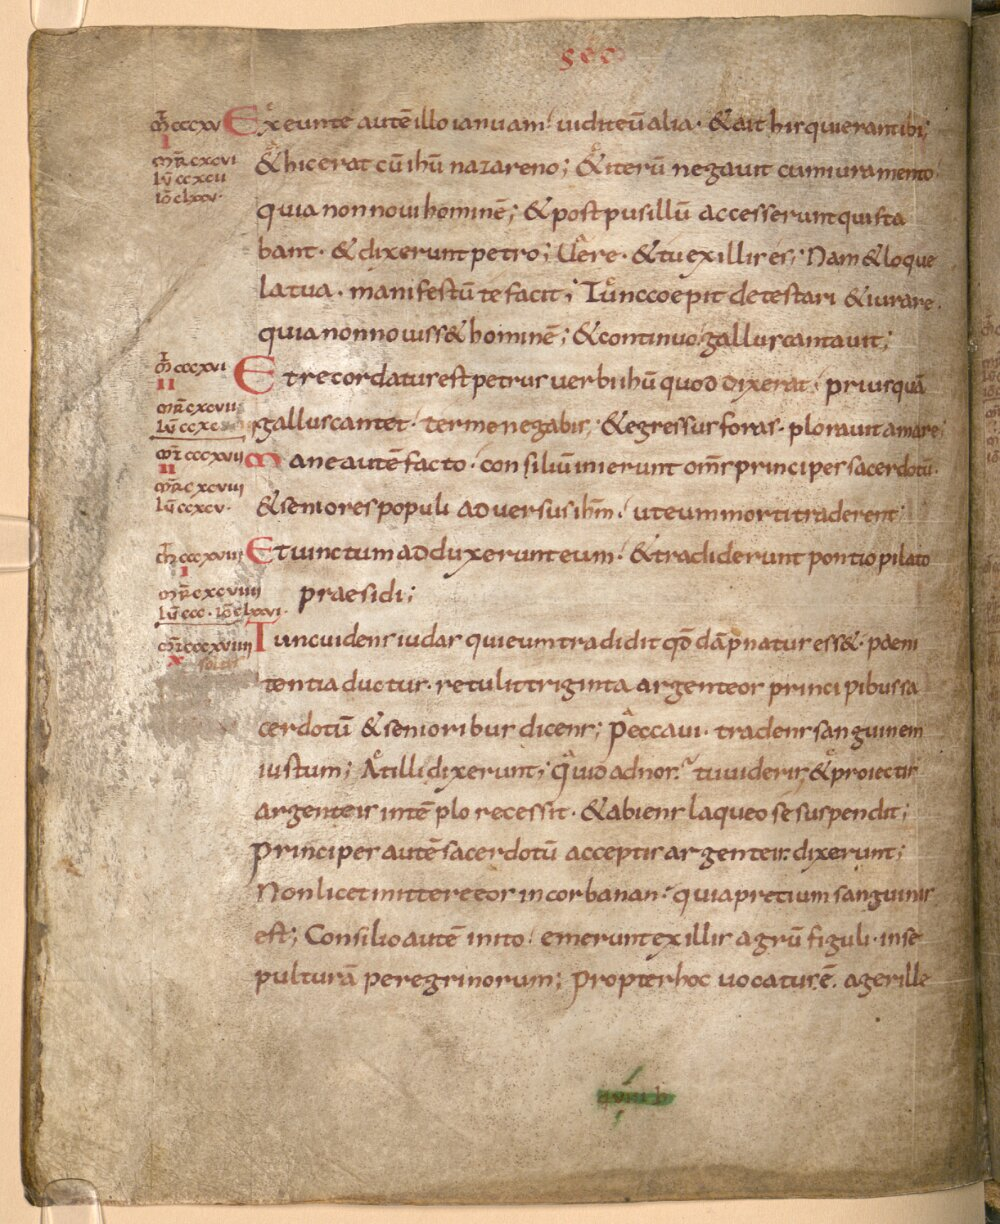 sec
m̄ cccxv Exeunte autē illo ianuam; uidit eū alia· & ait his qui erant ibi;
I
mr̄ cxcvi & hic erat cū ihū nazareno; & iterū negauit cum iuramento·
lū ccxcii
iō clxxv· quia non noui hominē; & post pusillū accesserunt qui sta
bant· & dixerunt petro; Uere· & tu ex illis es; Nam & loque
la tua· manifestū te facit; Tunc coepit detestari & iurare·
quia non nouiss& hominē; & continuo gallus cantauit;
m̄ cccxvi Et recordatus est petrus uerbi ihū quod dixerat; priusquā
II
mr̄ cxcvii
lū ccxc gallus cantet· ter me negabis; & egressus foras· plorauit amare;
mt̄ cccxvii Mane autē facto· consiliū inierunt om̄s principes sacerdotū·
II
mr̄ cxcviii
lū ccxcv· & seniores populi aduersus ihm̄; ut eum morti traderent;
m̄ cccxviii Et iunctum adduxerunt eum· & tradiderunt pontio pilato
I
mr̄ cxcviiii praesidi;
lū ccc· iō clxxvi·
mt̄ cccxviiii Tunc uidens iudas qui eum tradidit qđ dāpnatus ess&· paeni
x solus
tentia ductus· retulit triginta argenteos principibus sa
cerdotū & senioribus dicens; Peccaui· tradens sanguinem
iustum; At illi dixerunt; Quid ad nos? tu uideris; & proiectis
argenteis in tēplo recessit· & abiens laqueo se suspendit;
Principes autē sacerdotū acceptis argenteis dixerunt;
Non licet mittere eos in corbanan· quia pretium sanguinis
est; Consilio autē inito· emerunt ex illis agrū figuli· in se
pulturā peregrinorum; Propter hoc uocatus ē· ager ille
xviii b